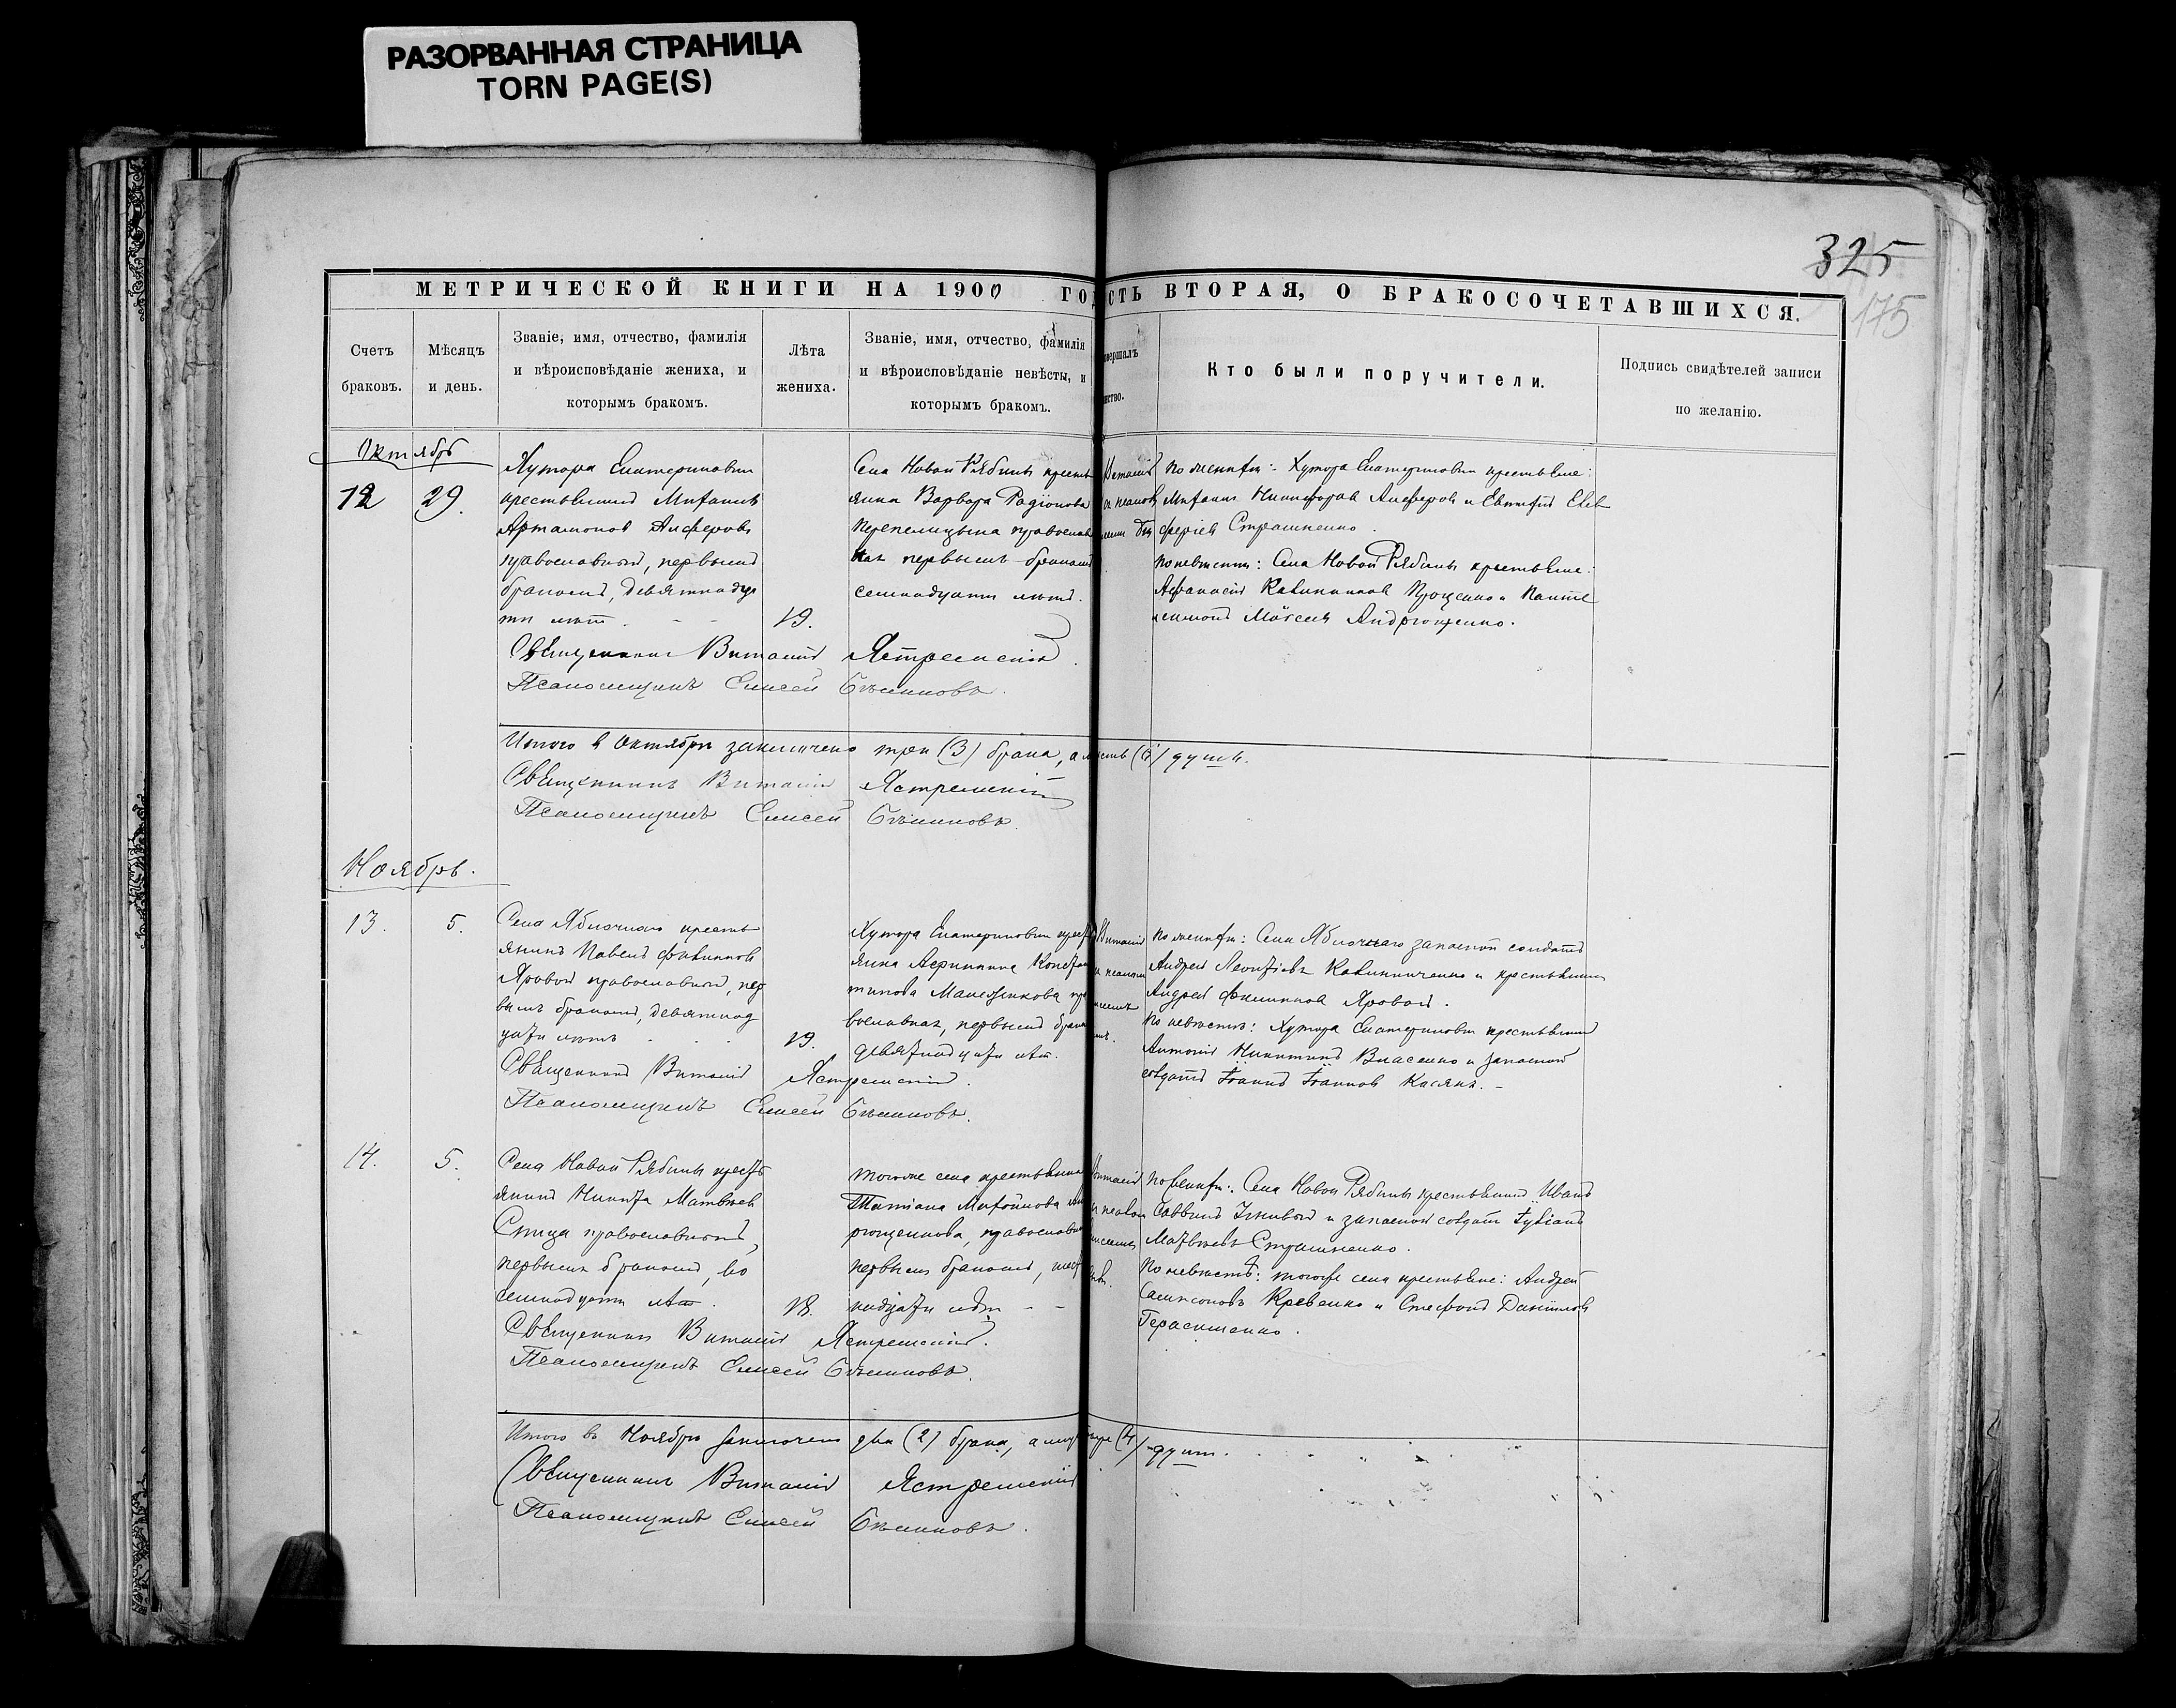 РАЗОРВАННАЯ СТРАНИЦА
TORN PAGE(S)
325
175
МЕТРИЧЕСКОЙ КНИГИ НА 1900 ГО
СТЬ ВТОРАЯ, О БРАКОСОЧЕТАВШИХСЯ.
Счетъ
браковъ.
Мѣсяцъ
и день.
Званіе, имя, отчество, фамилія
и вѣроисповѣданіе жениха, и
которымъ бракомъ.
Лѣта
жениха.
Званіе, имя, отчество, фамилія
и вѣроисповѣданіе невѣсты, и
которымъ бракомъ.
вершалъ
нство.
Кто были поручители.
Подпись свидѣтелей записи
по желанію.
Октябрь
12
29.
Хутора Екатериновки
крестьянинъ
Артамоновъ Алферовъ
православный, первымъ
бракомъ, девятнадца
ти лѣт.
19.
Села Новой Рябины кресть
янка Варвара Радіонова
Перепелицына православ
ная первымъ бракомъ
семнадцати лѣтъ.
По женихѣ: Хутора Екатериновки крестьяне:
Никифоровъ Алферовъ и Евтифій Елев
феріевъ Страшненко.
По невѣстѣ: Села Новой Рябины крестьяне:
Афанасій Калинниковъ Проценко и Панте
леимонъ Моѵсеевъ Андрющенко.
Священникъ Виталій Ястремскій
Псаломщикъ Елисей
Итого в Октябрѣ заключено три (3) брака, а лицъ шесть (6) душъ.
Священникъ Виталій Ястремскій
Псаломщикъ Елисей
Ноябрь.
13.
5.
Села Яблочнаго кресть
янинъ Павелъ Филиповъ
Яровой православный, пер
вымъ бракомъ, девятнад
цати лѣтъ
19.
Хутора Екатериновки крест
янка Агрипина Констан
тинова Манежикова пра
вославная, первымъ брако
девятнадцати лѣт.
По женихѣ: Села Яблочнаго запасной солдатъ
Андрей Леонтіевъ Калиниченко и крестьянинъ
Андрей Филиповъ Яровой.
По невѣстѣ: Хутора Екатериновки крестьянинъ
Антоній Никитинъ Власенко и запасной
солдатъ Іоаннъ Іоанновъ Касянъ.
Священникъ Виталій Ястремскій.
Псаломщикъ Елисей
14.
5.
Села Новой Рябины крестъ
янинъ Никита Матвѣевъ
православный,
первымъ бракомъ, во
семнадцати лѣт.
18.
Тогоже села крестьянка
Татіана Митрофанова
православная
первымъ бракомъ, шест
надцати лѣт
По женихѣ: Села Новой Рябины крестьянинъ Иванъ
Саввинъ и запасной солдатъ Іуліанъ
Матвѣевъ Страшненко.
По невѣстѣ: тогоже села крестьяне: Андрей
Сампсоновъ Кревенко и Стефанъ Даніиловъ
Герасименко.
Священникъ Виталій Ястремскій.
Псаломщикъ Елисей
Итого въ Ноябрѣ заключено два (2) брака, а лицъ (4) душъ.
Священникъ Виталій Ястремскій
Псаломщикъ Елисей